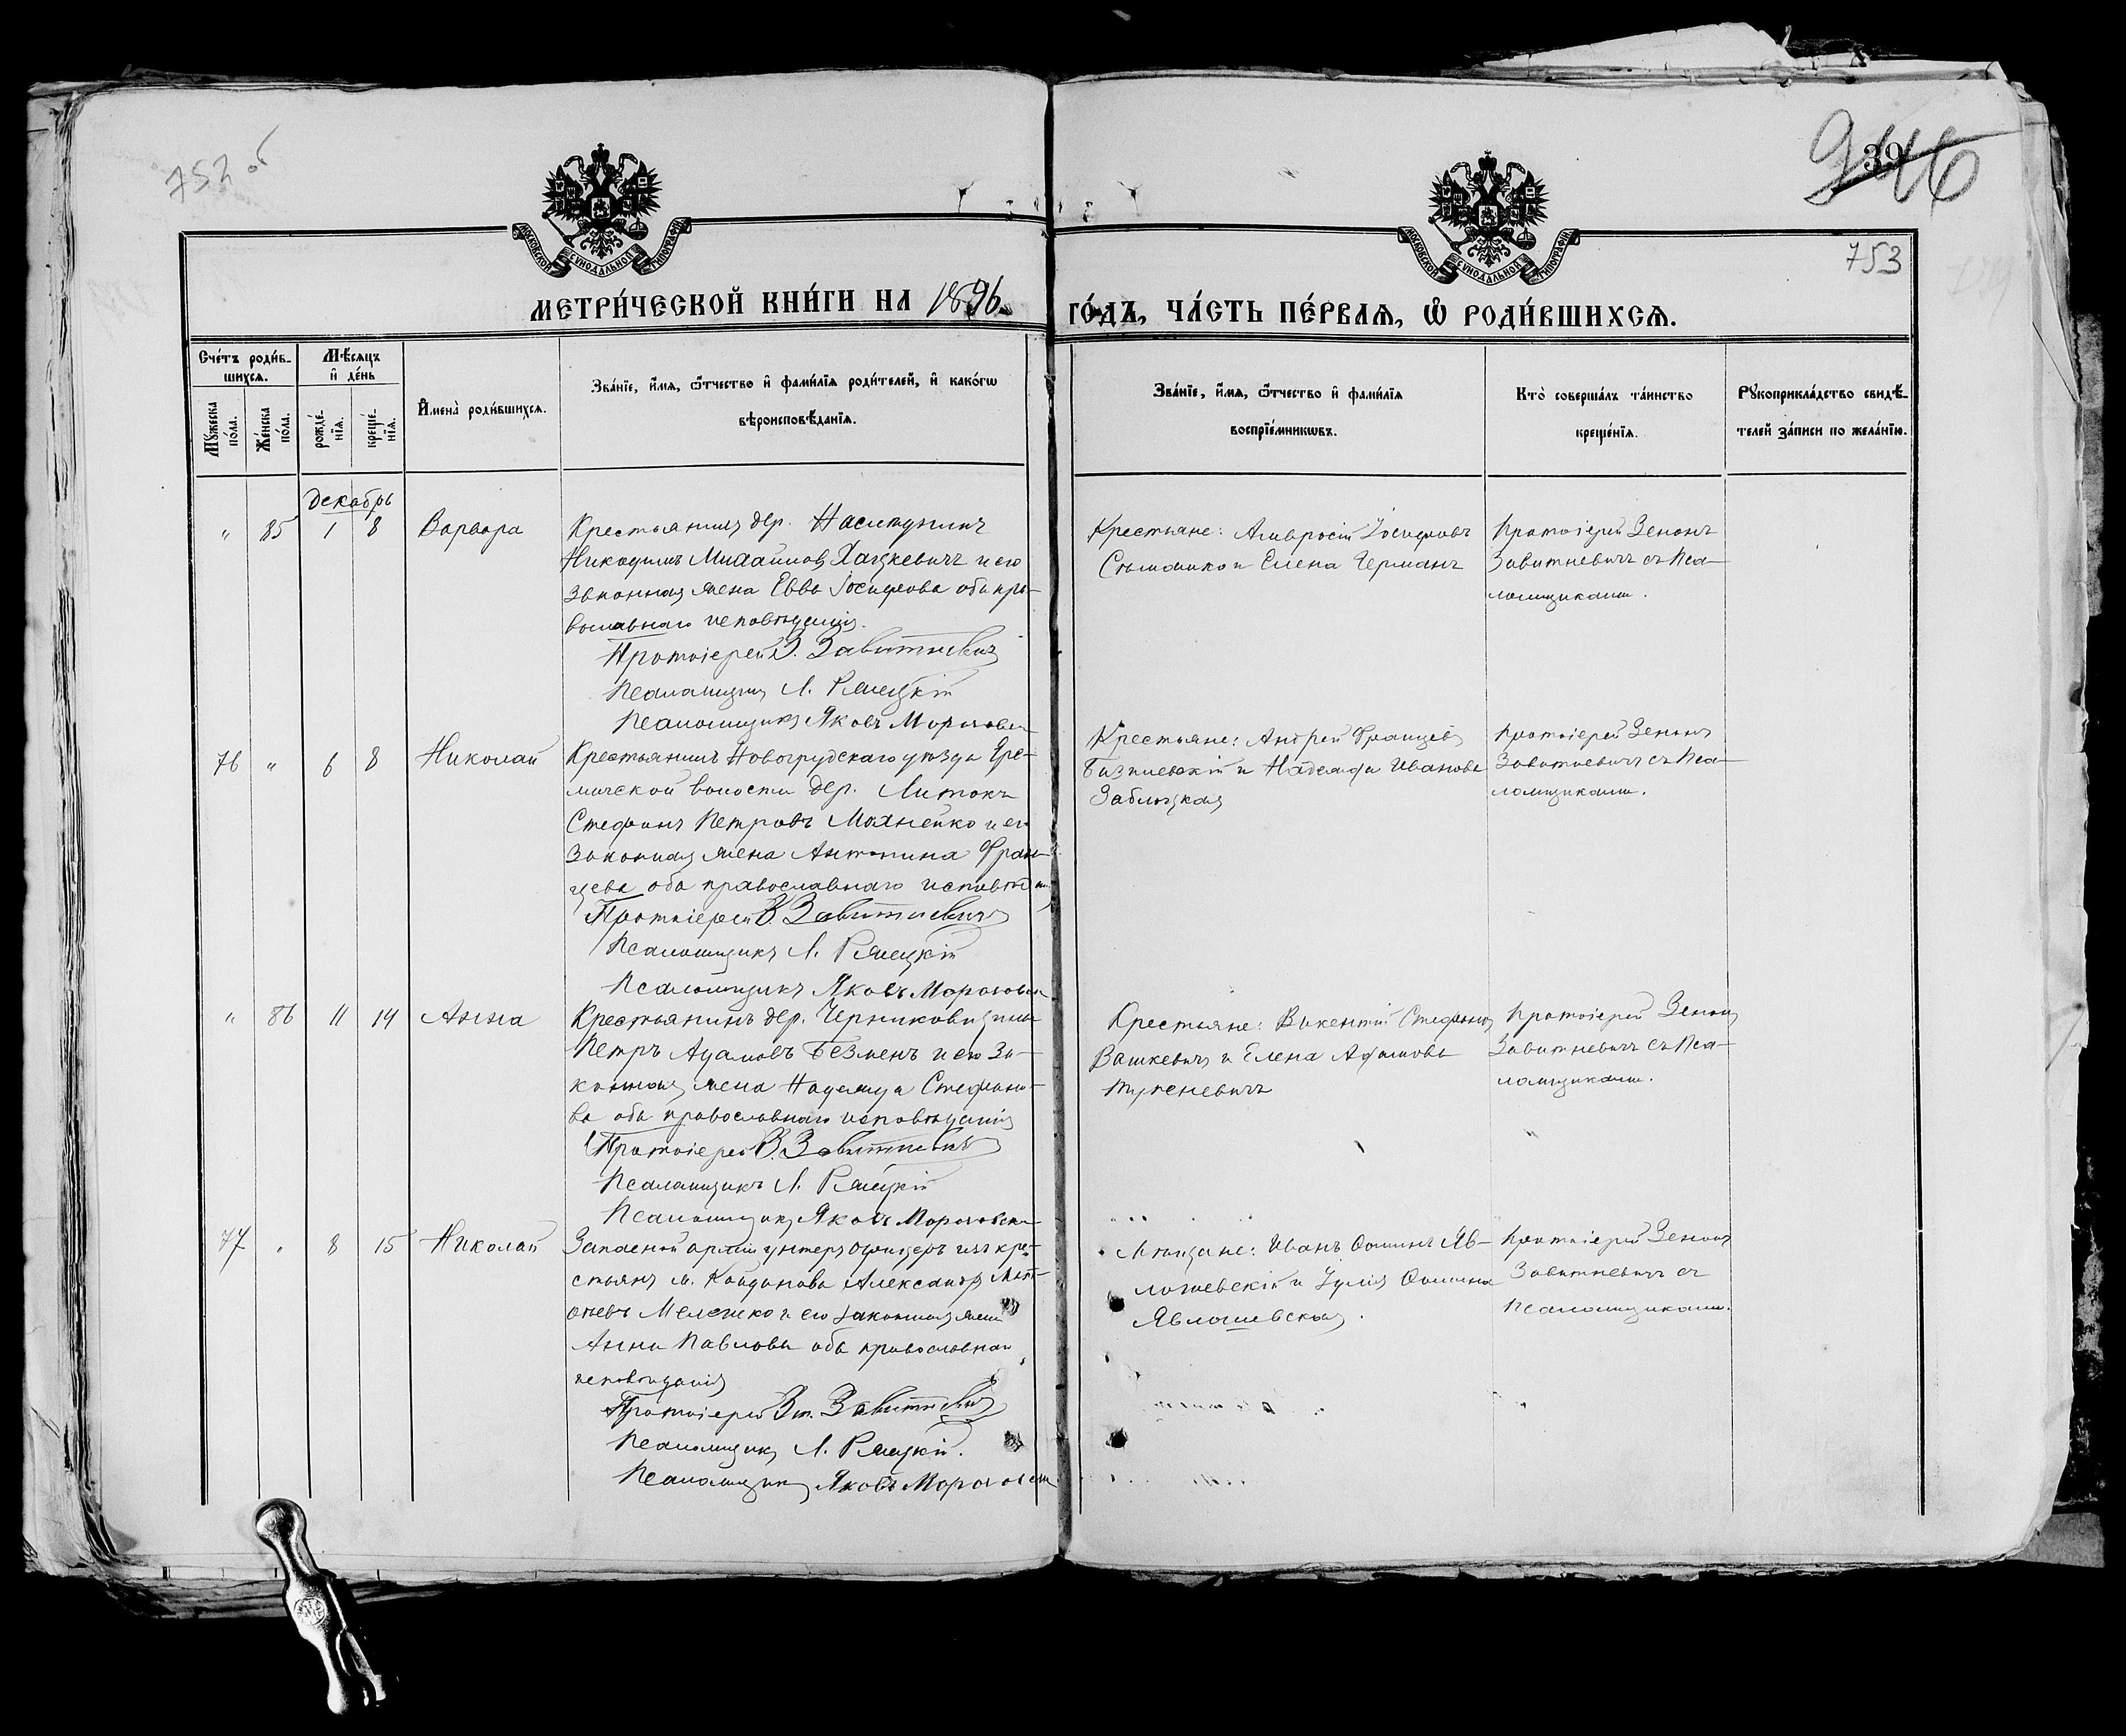 752 об
946
39
753
МОСКОВСКОЙ СѴНОДАЛЬНОЙ ТИПОГРАФІИ
МОСКОВСКОЙ СѴНОДАЛЬНОЙ ТИПОГРАФІИ
МЕТРИ́ЧЕСКОЙ КНИ́ГИ НА 1896
ГО́ДЪ, ЧА́СТЬ ПЕ́РВАѦ, Ѽ РОДИ́ВШИХСѦ.
Сче́тъ роди́в-
шихсѧ.
Мꙋ́жеска по́ла.
Же́нска по́ла.
Мѣ́сѧцъ
и҆ де́нь
рожде́нїѧ.
креще́нїѧ.
И҆мена̀ роди́вшихсѧ.
Зва́нїе, и҆́мѧ, ѻ҆́тчество и҆ фами́лїѧ роди́телей, и҆ како́гѡ
вѣроисповѣ́данїѧ.
Зва́нїе, и҆́мѧ, ѻ҆́тчество и҆ фами́лїѧ
воспрїе́мникѡвъ.
Кто̀ соверша́лъ та́инство
креще́нїѧ.
Рꙋкоприкла́дство свидѣ́-
телей за́писи по жела́нїю.
Декабрь
" 85 1 8 Варвара
Крестьянинъ дер.
Никодимъ Михайловъ Хацкевичъ и его
законная жена Евва Іосифова оба пра-
вославнаго исповѣданія.
Протоіерей З. Завитневичъ
Псаломщикъ Л.
Псаломщикъ Яковъ
Крестьяне: Амвросій Іосифовъ
и Елена Германъ
Протоіерей Зенонъ
Завитневичъ съ Пса-
ломщиками.
76 " 6 8 Николай
Крестьянинъ Новогрудскаго уѣзда Ере-
мичской волости дер. Литокъ
Стефанъ Петровъ Махнейко и его
законная жена Антонина Фран-
цева оба православнаго исповѣданія
Протоіерей З. Завитневичъ
Псаломщикъ Л.
Псаломщикъ Яковъ
Крестьяне: Андрей Францевъ
и Надежда Иванова
Заблоцкая
Протоіерей Зенонъ
Завитневичъ съ Пса-
ломщиками.
" 86 11 14 Анна
Крестьянинъ дер. Черниковщины
Петръ Адамовъ Безменъ и его за-
конная жена Надежда Стефано-
ва оба православнаго исповѣданія
Протоіерей З. Завитневичъ
Псаломщикъ Л.
Псаломщикъ Яковъ
Крестьяне: Викентій Стефановъ
Вашкевичъ и Елена Адамова
Протоіерей Зенонъ
Завитневичъ съ Пса-
ломщиками.
77 " 8 15 Николай
Запасной арміи унтеръ офицеръ изъ кре-
стьянъ м. Койданова Александръ Мат-
ѳеевъ Мелешко и его законная жена
Анна Павлова оба православнаго
исповѣданія
Протоіерей Зен. Завитневичъ
Псаломщикъ Л.
Псаломщикъ Яковъ
Мѣщане: Иванъ Ѳоминъ Яв-
и Юлія Ѳомина
Протоіерей Зенонъ
Завитневичъ съ
Псаломщиками.